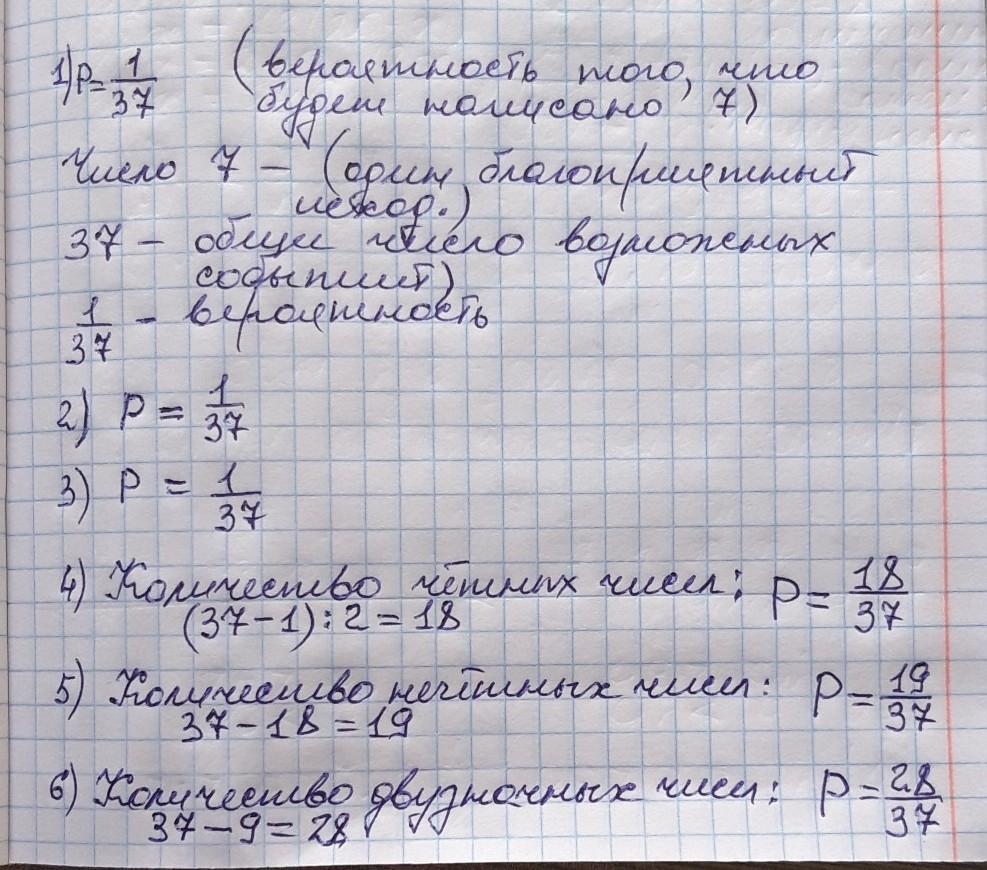 1) P = 1/37 (вероятность того, что
будет написано 7)
Число 7 – (один благоприятный
исход.)
37 – общее число возможных
событий)
1/37 – вероятность
2) P = 1/37
3) P = 1/37
4) Количество чётных чисел: P = 18/37
(37-1):2=18
5) Количество нечётных чисел: P = 19/37
37-18=19
6) Количество двузначных чисел: P = 28/37
37-9=28